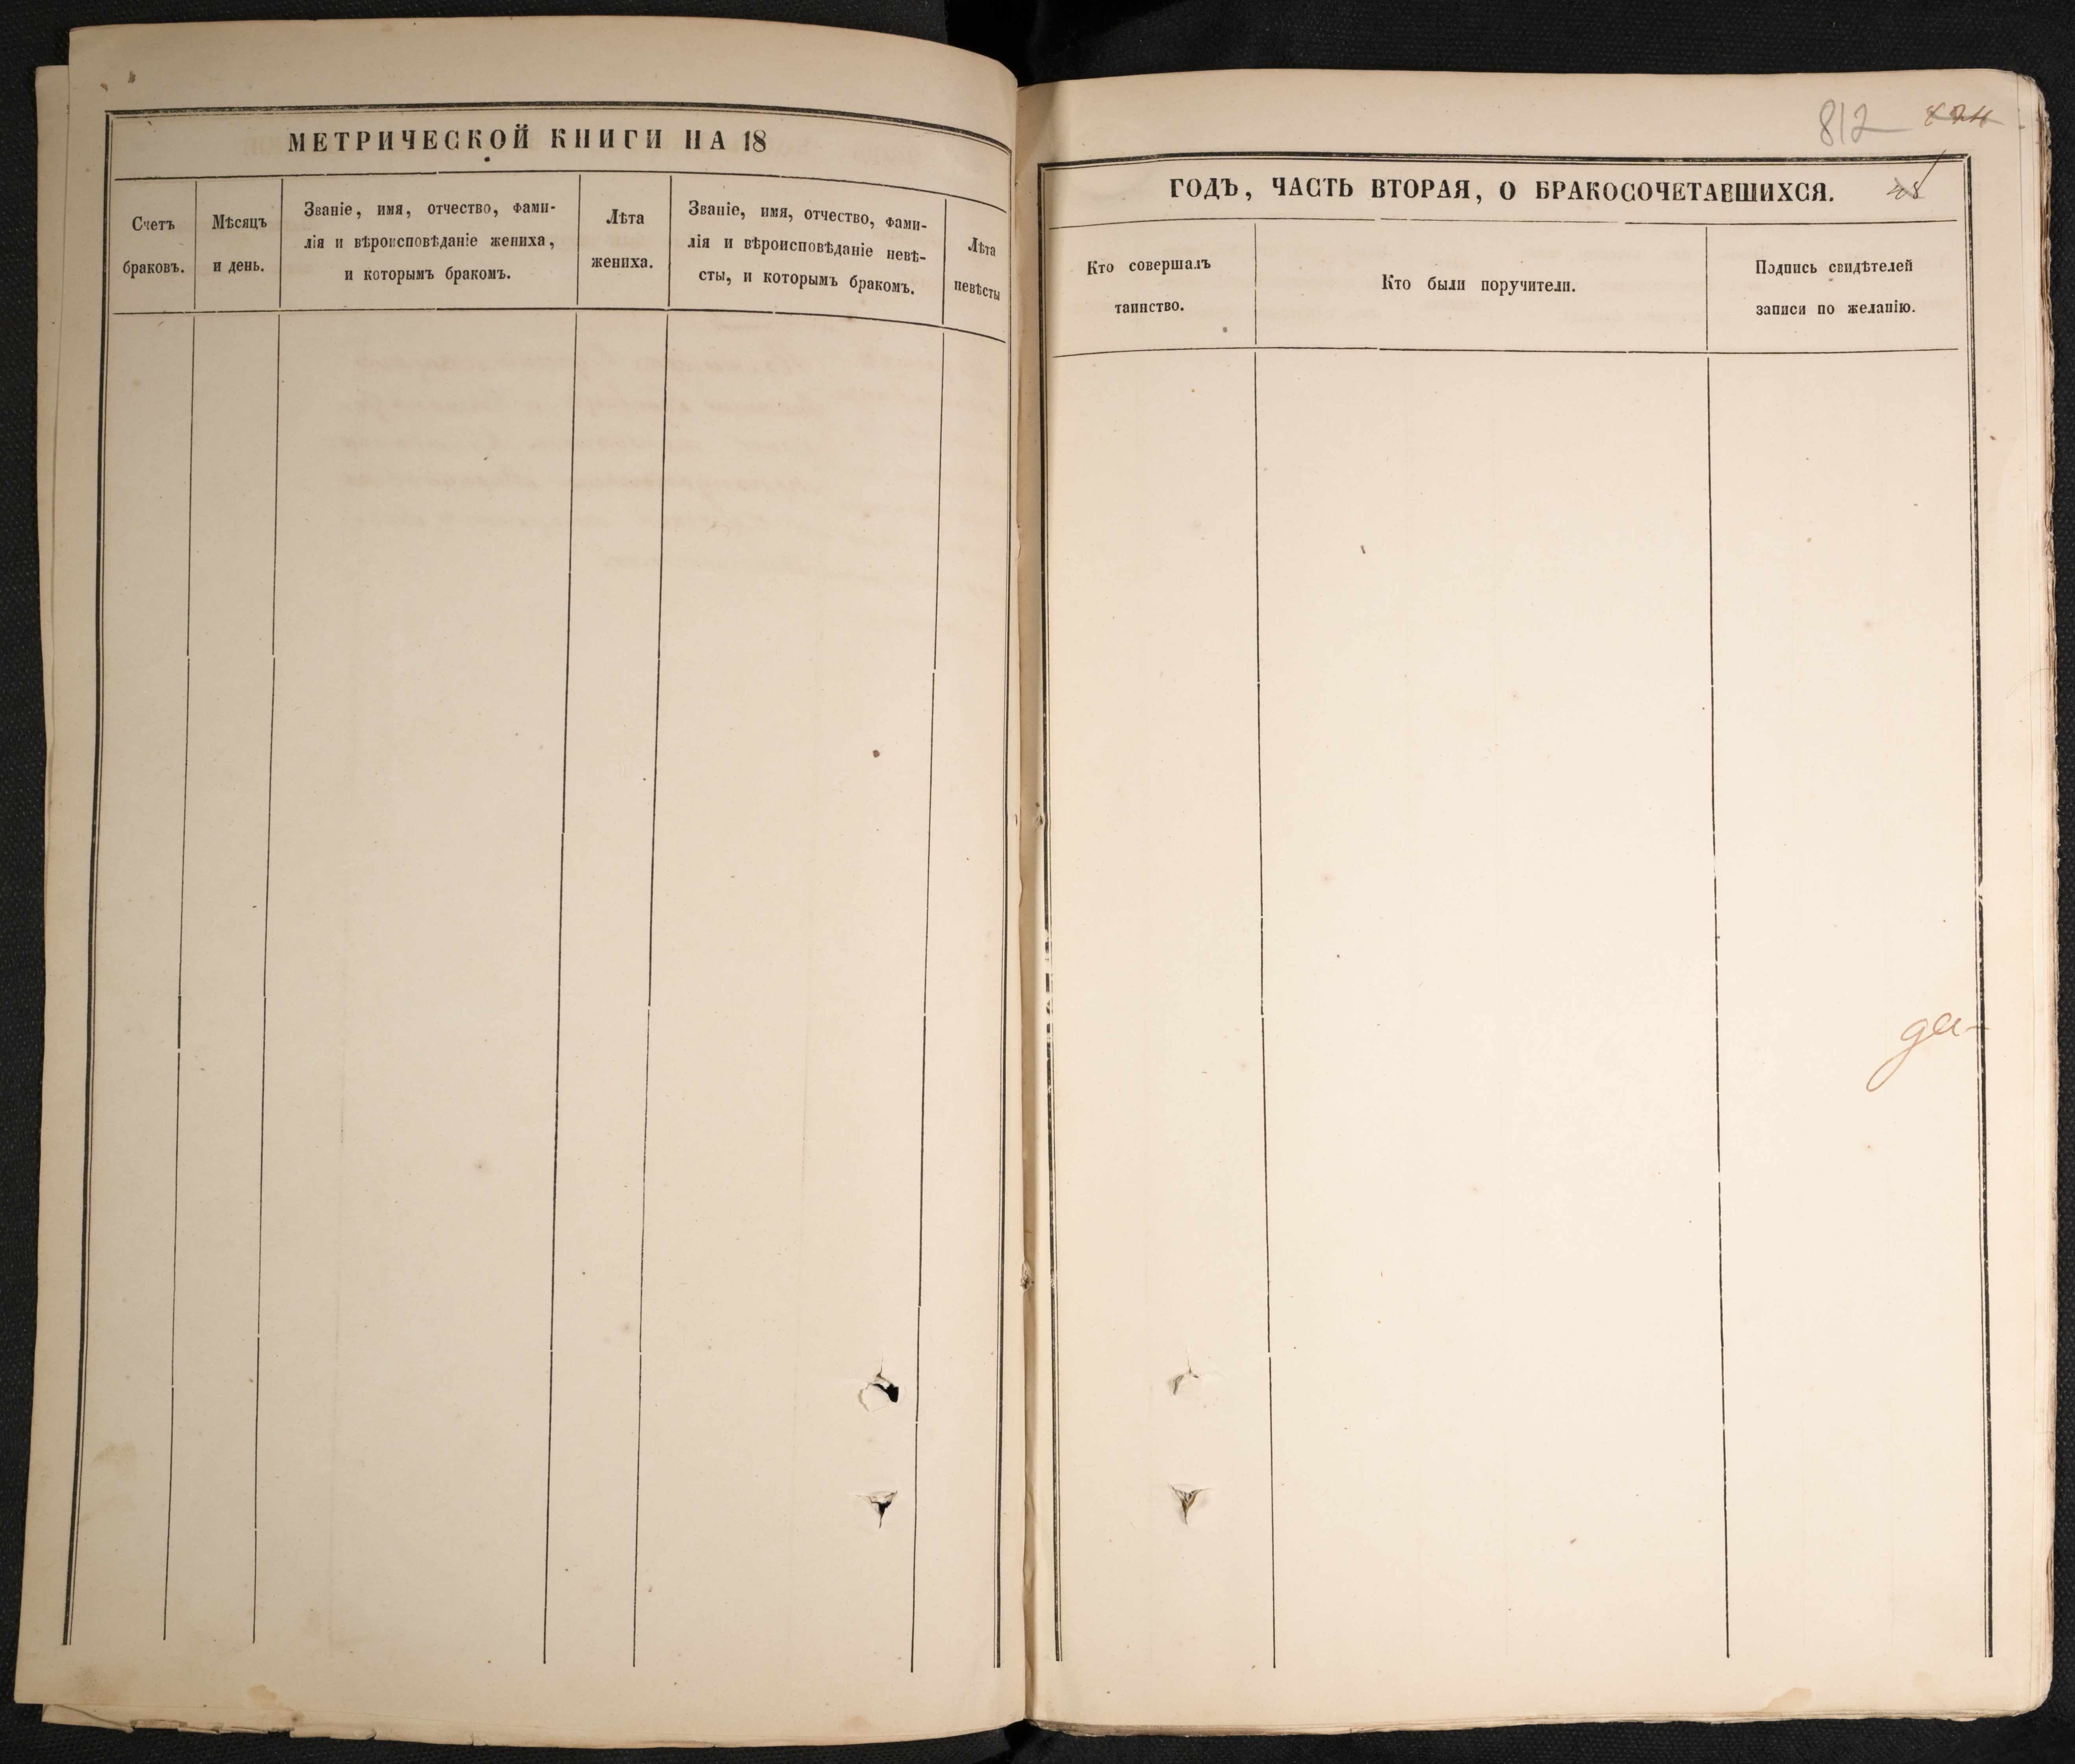 МЕТРИЧЕСКОЙ КНИГИ НА 18
Счетъ
браковъ.
Мѣсяцъ
и день.
Званіе, имя, отчество, фами-
лія и вѣроисповѣданіе жениха,
и которымъ бракомъ.
Лѣта
жениха.
Званіе, имя, отчество, фами-
лія и вѣроисповѣданіе невѣ-
сты, и которымъ бракомъ.
Лѣта
невѣсты
812
ГОДЪ, ЧАСТЬ ВТОРАЯ, О БРАКОСОЧЕТАВШИХСЯ.
Кто совершалъ
таинство.
Кто были поручители.
Подпись свидѣтелей
записи по желанію.
да-